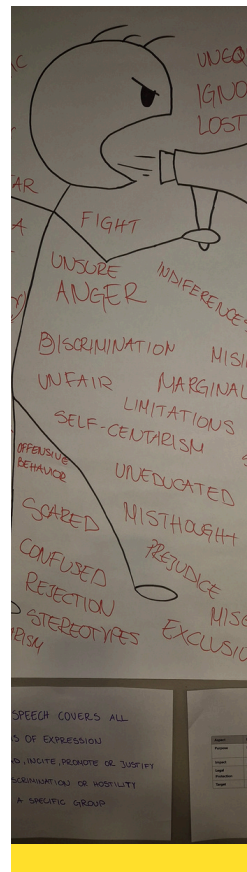 UNEQ
IGNO
LOST
AR
FIGHT
A
UNSURE
INDIFERENCE
ANGER
DISCRIMINATION
MISI
UNFAIR
MARGINAL
LIMITATIONS
SELF-CENTARISM
OFFENSIVE
BEHAVIOR
UNEDUCATED
SCARED
MISTHOUGHT
CONFUSED
PREJUDICE
REJECTION
STEREOTYPES
EXCLUSIO
RISM
SPEECH COVERS ALL
S OF EXPRESSION
, INCITE, PROMOTE OR JUSTIFY
SCRIMINATION OR HOSTILITY
A SPECIFIC GROUP